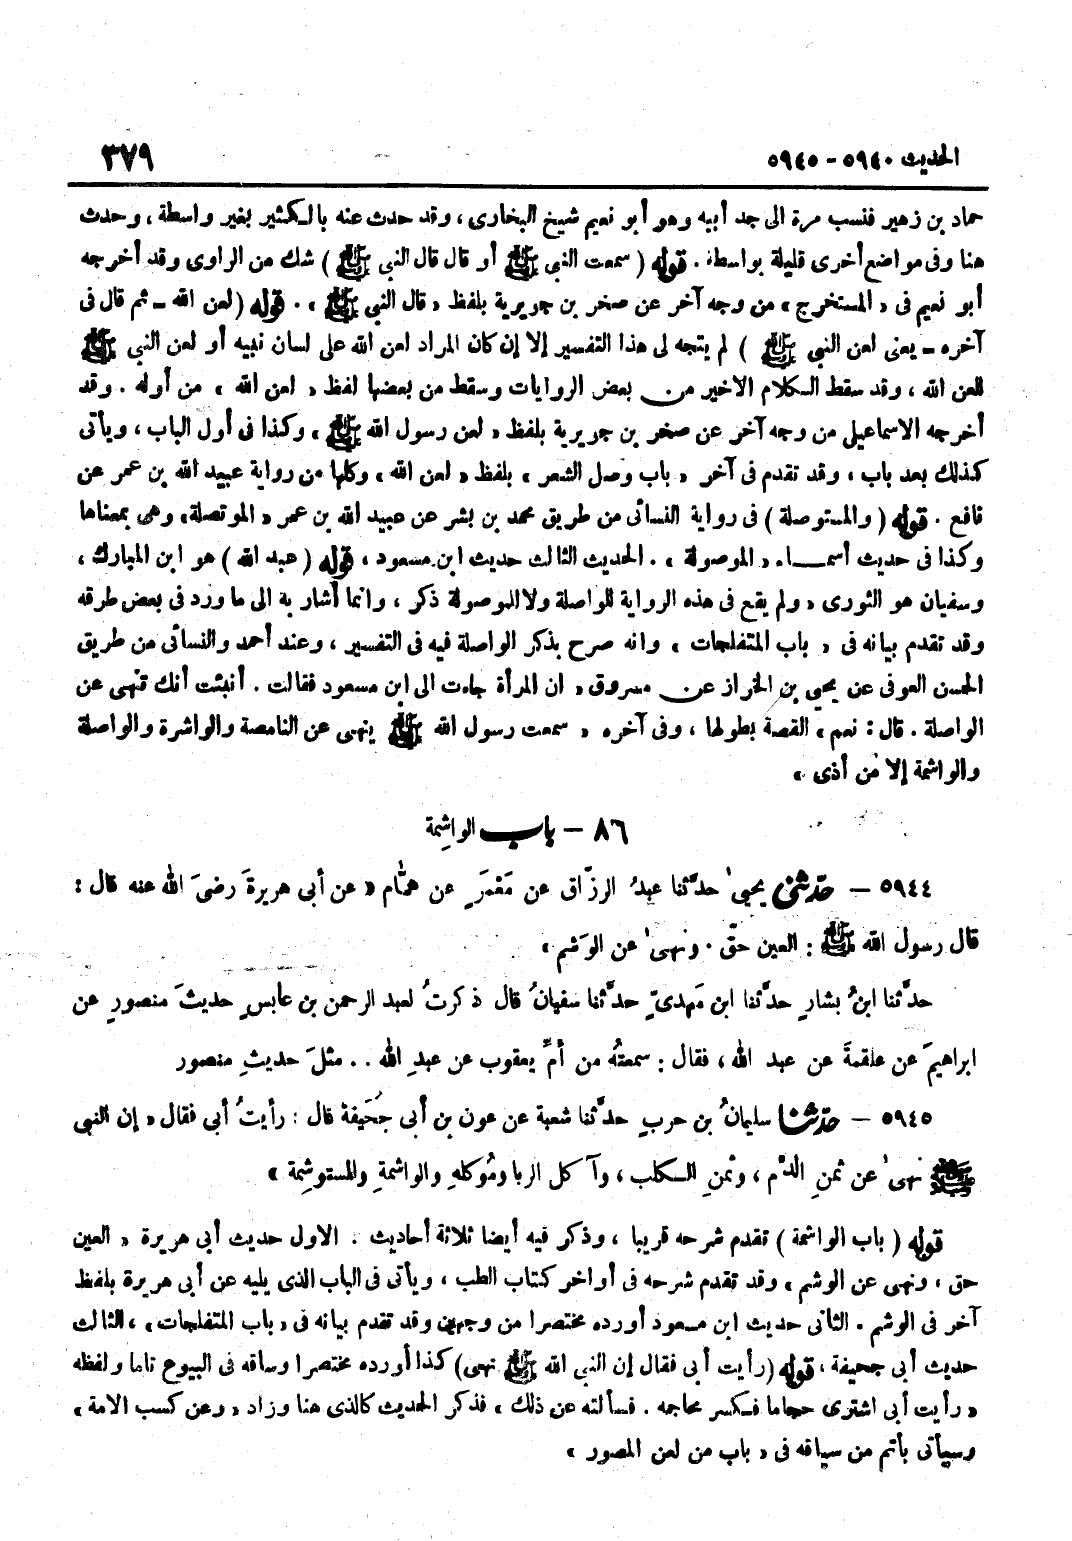 الحديث ٥٩٤٠ - ٥٩٤٥
٣٧٩
حماد بن زهير فنسب مرة الى جد أبيه وهو أبو نعيم شيخ البخارى ، وقد حدث عنه بالكثير بغير واسطة ، وحدث
هنا وفى مواضع أخرى قليلة بواسطة . قوله ( سمعت النبى ﷺ أو قال قال النبى ﷺ ) شك من الراوى وقد أخرجه
أبو نعيم فى « المستخرج » من وجه آخر عن صخر بن جويرية بلفظ « قال النبى ﷺ » . قوله ( لعن الله ـ ثم قال فى
آخره ـ يعنى لعن النبى ﷺ ) لم يتجه لى هذا التفسير إلا إن كان المراد لعن الله على لسان نبيه أو لعن النبى ﷺ
للعن الله ، وقد سقط الكلام الاخير من بعض الروايات وسقط من بعضها لفظ « لعن الله » من أوله . وقد
أخرجه الاسماعيلى من وجه آخر عن صخر بن جويرية بلفظ « لعن رسول الله ﷺ » وكذا فى أول الباب ، ويأتى
كذلك بعد باب ، وقد تقدم فى آخر « باب وصل الشعر » بلفظ « لعن الله » وكلها من رواية عبيد الله بن عمر عن
نافع . قوله ( والمستوصلة ) فى رواية النسائى من طريق محمد بن بشر عن عبيد الله بن عمر « الموتصلة » وهى بمعناها
وكذا فى حديث أسماء « الموصولة » . الحديث الثالث حديث ابن مسعود ، قوله ( عبد الله ) هو ابن المبارك ،
وسفيان هو الثورى « ولم يقع فى هذه الرواية للواصلة ولا للموصولة ذكر ، وانما أشار به الى ما ورد فى بعض طرقه
وقد تقدم بيانه فى « باب المتفلجات » وانه صرح بذكر الواصلة فيه فى التفسير ، وعند أحمد والنسائى من طريق
الحسن العوفى عن يحيى بن الخراز عن مسروق « ان المرأة جاءت الى ابن مسعود فقالت . أنبئت أنك تنهى عن
الواصلة . قال : نعم » القصة بطولها ، وفى آخره « سمعت رسول الله ﷺ ينهى عن النامصة والواشرة والواصلة
والواشمة إلا من أذى »
٨٦ – باب الواشِمة
٥٩٤٤ – حدَّثنى يحيىٰ حدَّثنا عبدُ الرزّاق عن مَعْمَرٍ عن همَّام « عن أبى هريرةَ رضىَ الله عنه قال :
قال رسول الله ﷺ : العين حقّ . ونهىٰ عن الوَشم »
حدَّثنا ابنُ بشارٍ حدَّثنا ابن مَهدىّ حدَّثنا سفيانُ قال ذكرتُ لعبد الرحمن بن عابسٍ حديثَ منصورٍ عن
ابراهيمَ عن علقمةَ عن عبد الله ، فقال : سمعتُه من أمِّ يعقوب عن عبدِ الله . . مثلَ حديثِ منصور
٥٩٤٥ – حدَّثنا سليمانُ بن حربٍ حدَّثنا شعبة عن عون بن أبى جُحَيفة قال : رأيتُ أبى فقال « إن النبى
ﷺ نهىٰ عن ثمنِ الدَّم ، وثمنِ الكلب ، وآكل الربا ومُوكلهِ والواشمةِ والمستوشِمة »
قوله ( باب الواشمة ) تقدم شرحه قريبا ، وذكر فيه أيضا ثلاثة أحاديث . الاول حديث أبى هريرة « العين
حق ، ونهى عن الوشم » وقد تقدم شرحه فى أواخر كتاب الطب ، ويأتى فى الباب الذى يليه عن أبى هريرة بلفظ
آخر فى الوشم . الثانى حديث ابن مسعود أورده مختصرا من وجهين وقد تقدم بيانه فى « باب المتفلجات » ، الثالث
حديث أبى جحيفة ، قوله ( رأيت أبى فقال إن النبى الله ﷺ نهى) كذا أورده مختصرا وساقه فى البيوع تاما ولفظه
« رأيت أبى اشترى حجاما فكسر محاجمه . فسألته عن ذلك » فذكر الحديث كالذى هنا وزاد « وعن كسب الامة »
وسيأتى بأتم من سياقه فى « باب من لعن المصور »